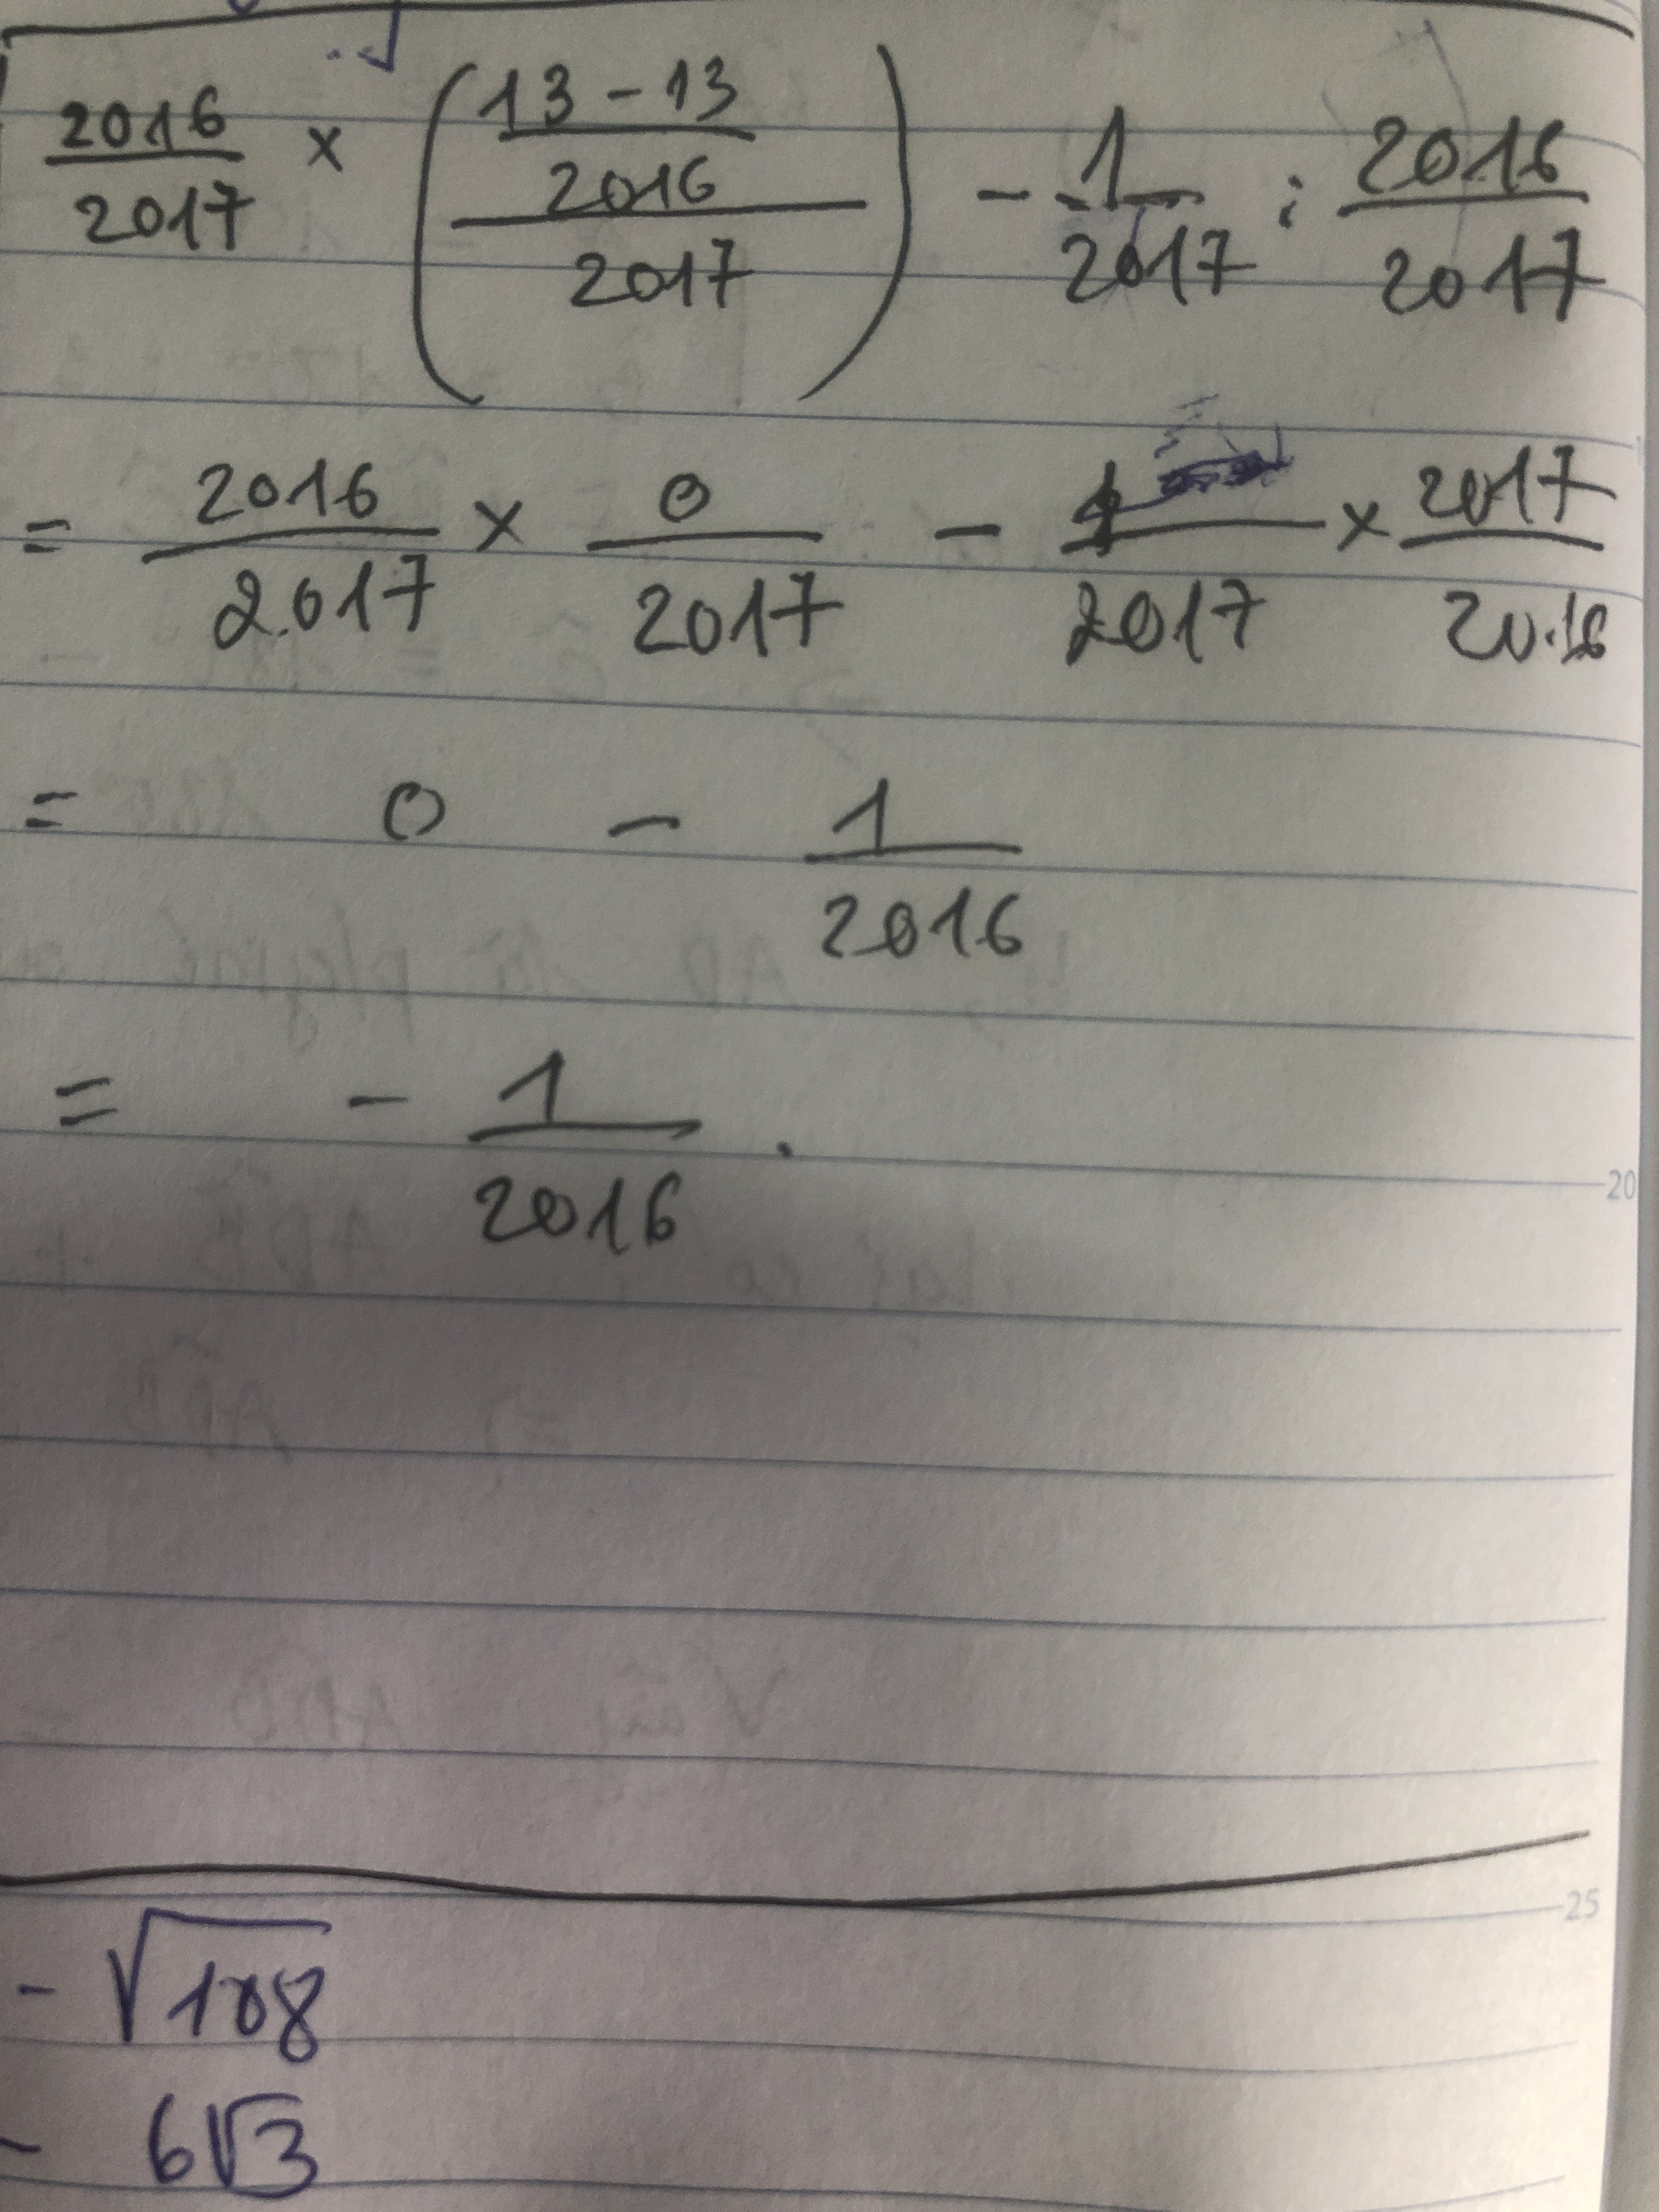 2016/2017 × (((13 - 13)/2016)/2017) - 1/2017 : 2016/2017
= 2016/2017 × 0/2017 - 1/2017 × 2017/2016
= 0 - 1/2016
= - 1/2016 .
20
25
- √108
- 6√3